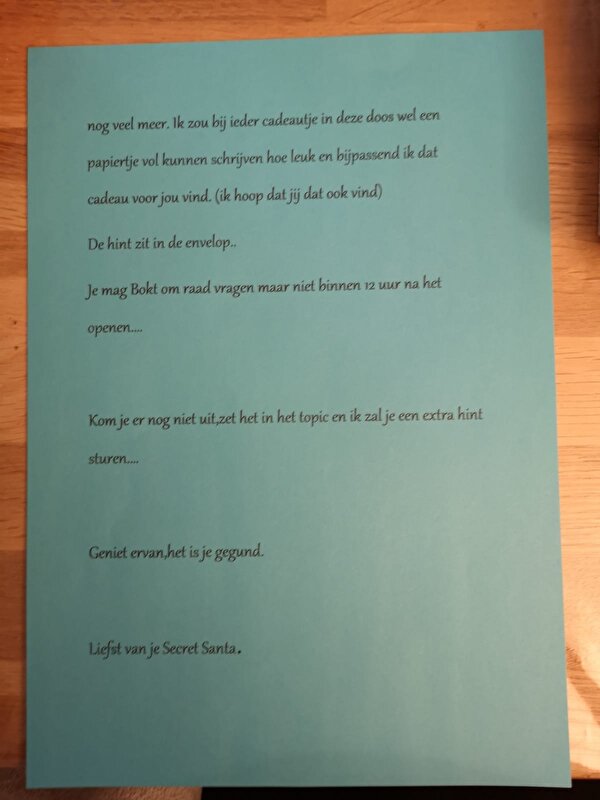 nog veel meer. Ik zou bij ieder cadeautje in deze doos wel een
papiertje vol kunnen schrijven hoe leuk en bijpassend ik dat
cadeau voor jou vind. (ik hoop dat jij dat ook vind)
De hint zit in de envelop..
Je mag Bokt om raad vragen maar niet binnen 12 uur na het
openen....
Kom je er nog niet uit,zet het in het topic en ik zal je een extra hint
sturen....
Geniet ervan,het is je gegund.
Liefst van je Secret Santa.